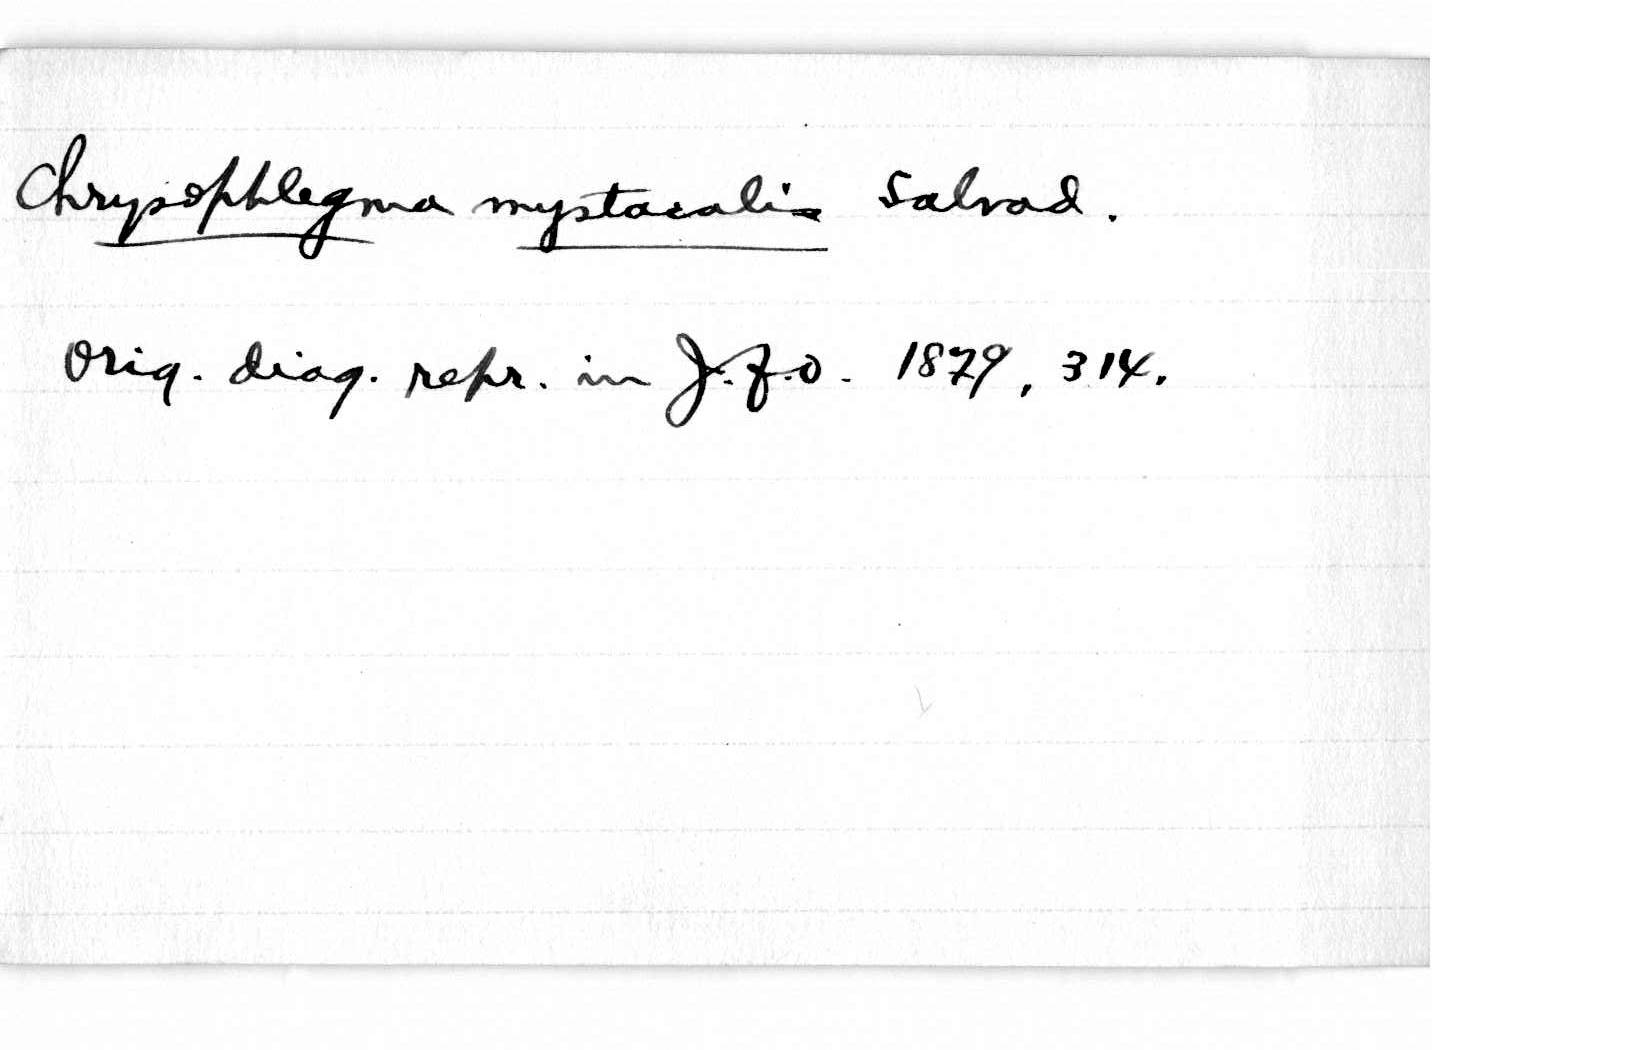 Chrysophlegma mystacalis Salvad.
Orig. diag. repr. in J.f.O. 1879, 314.